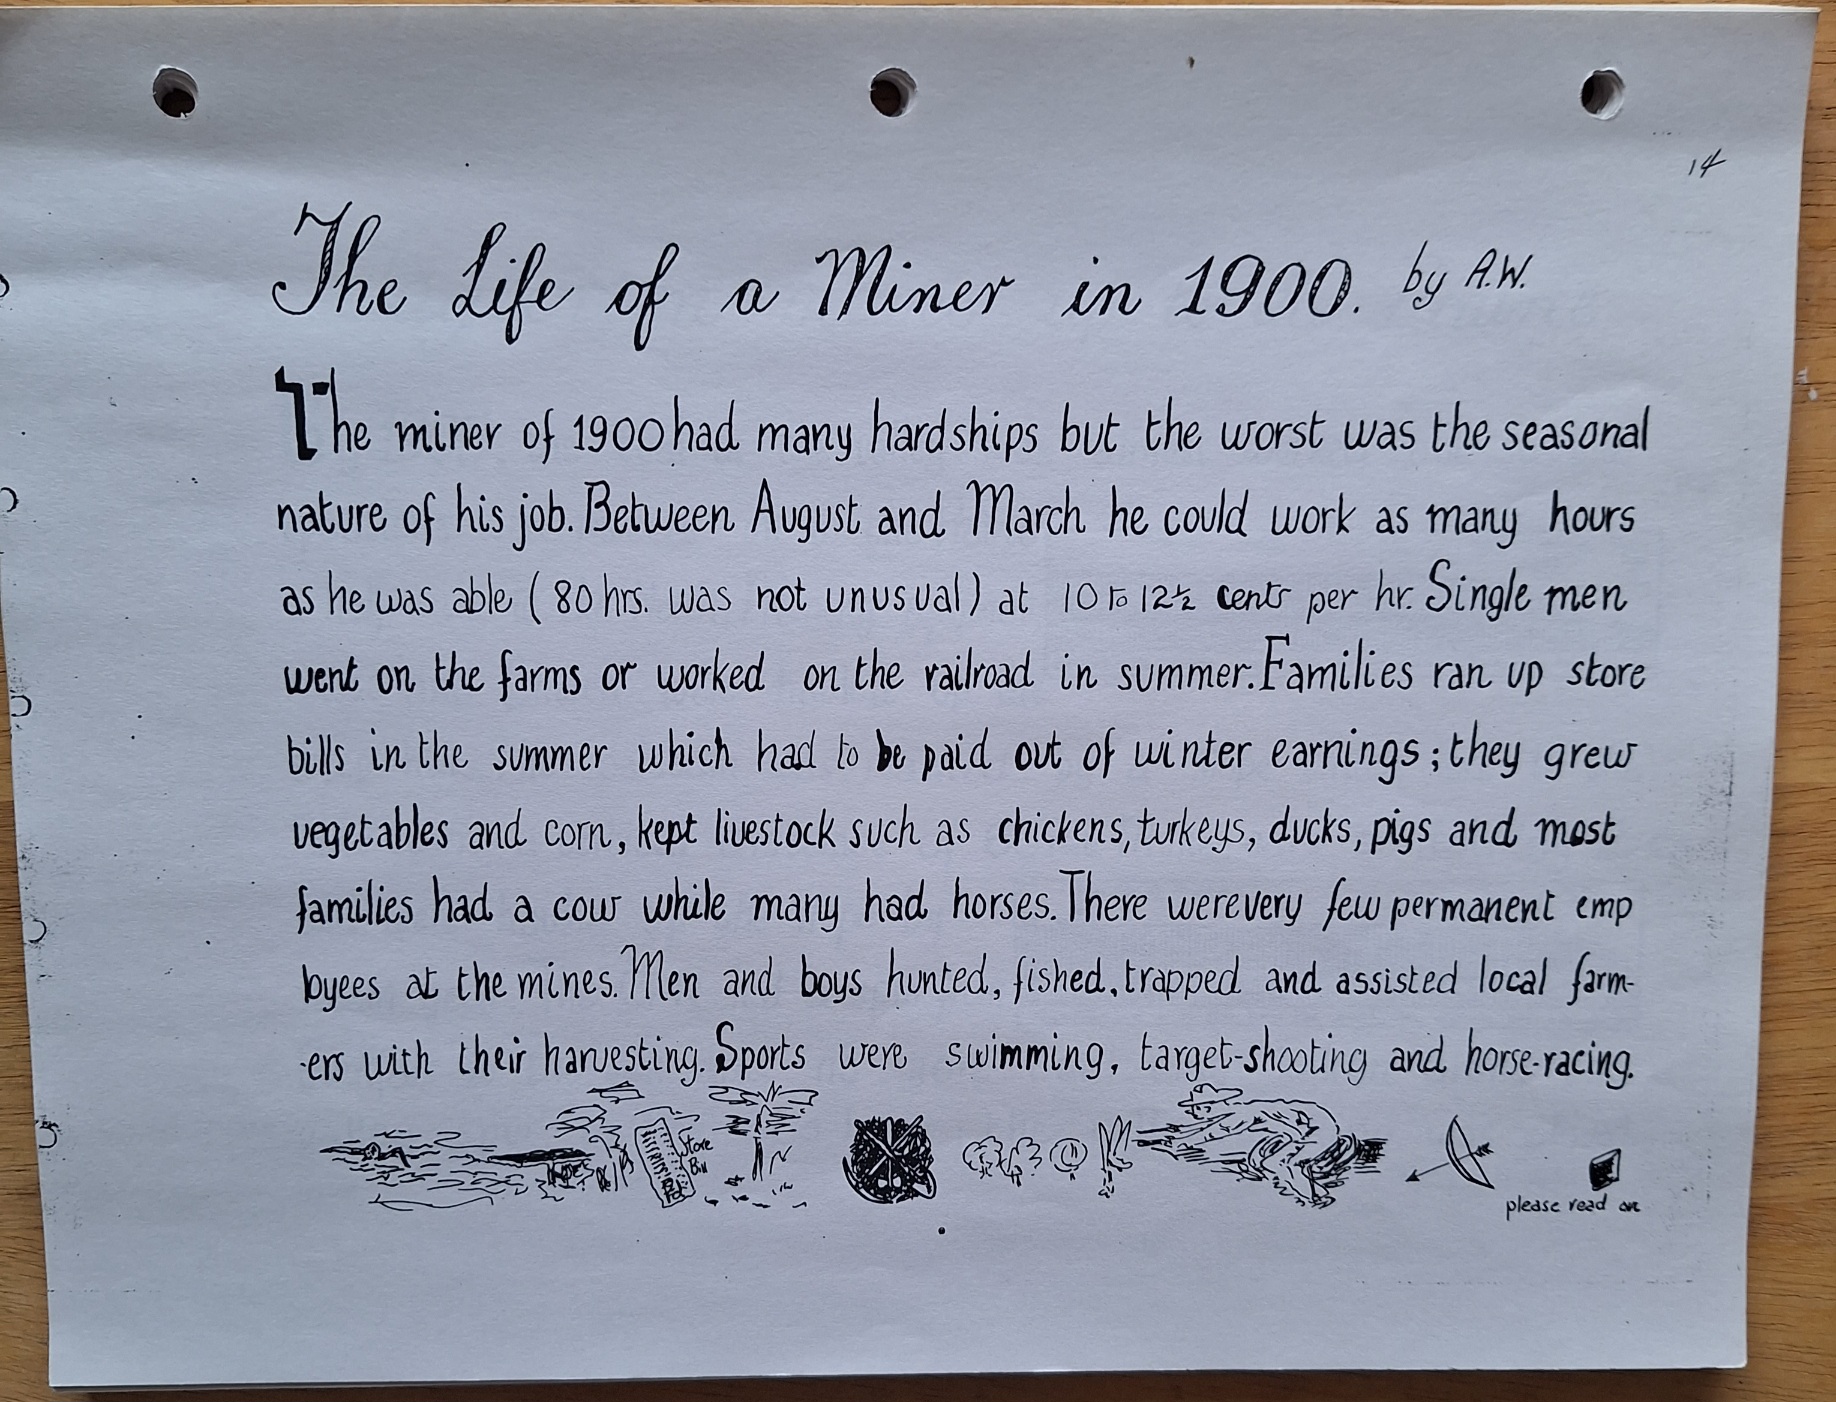 14
The Life of a Miner in 1900. by A.W.
The miner of 1900 had many hardships but the worst was the seasonal
nature of his job. Between August and March he could work as many hours
as he was able ( 80 hrs. was not unusual ) at 10 to 12½ cents per hr. Single men
went on the farms or worked on the railroad in summer. Families ran up store
bills in the summer which had to be paid out of winter earnings ; they grew
vegetables and corn, kept livestock such as chickens, turkeys, ducks, pigs and most
families had a cow while many had horses. There were very few permanent emp
loyees at the mines. Men and boys hunted, fished, trapped and assisted local farm-
-ers with their harvesting. Sports were swimming, target-shooting and horse-racing.
Store
Bill
Pd.
please read on